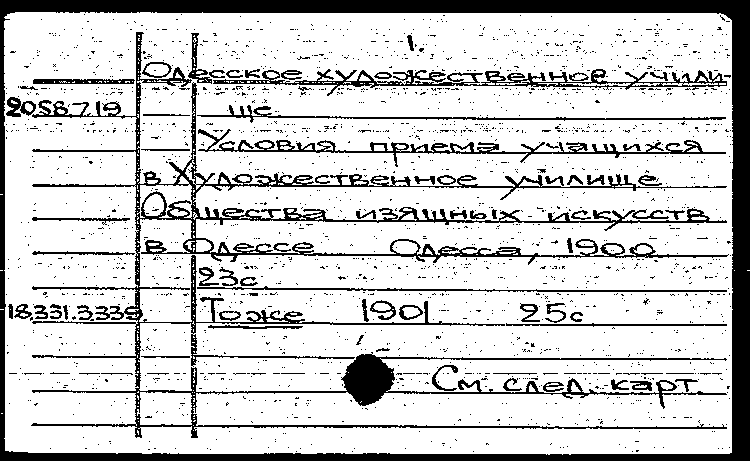 1.
Одесское художественное учили-
20.58.7.19 ще
Условия приема учащихся
в Художественное училище
Общества изящных искусств
в Одессе Одесса, 1900
23с
18.331.3.339 Тоже 1901 25с
См. след. карт.